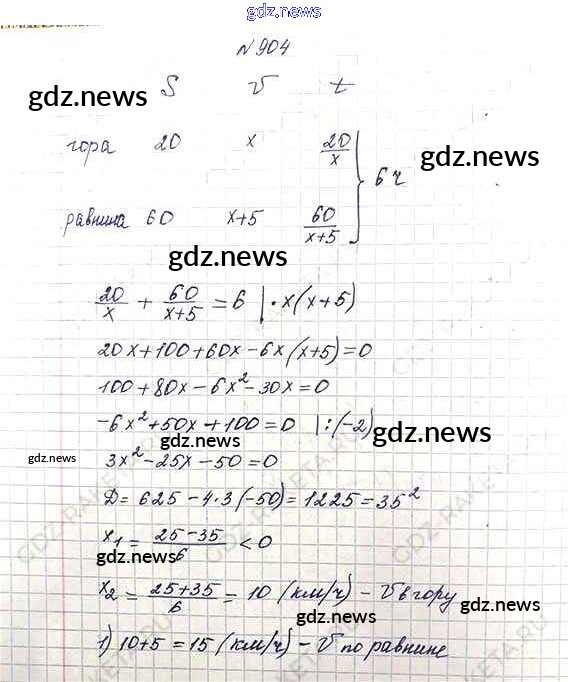 gdz.news
№904
gdz.news
S V t
гора 20 x 20/x
gdz.news
6 ч
равнина 60 x+5 60/(x+5)
gdz.news
20/x + 60/(x+5) = 6 | · x(x+5)
20x+100+60x-6x(x+5)=0
100+80x-6x²-30x=0
-6x²+50x+100=0 |:(-2)
gdz.news
gdz.news
gdz.news
3x²-25x-50=0
D=625-4·3(-50)=1225=35²
x₁ = (25-35)/6 < 0
gdz.news
x₂ = (25+35)/6 = 10 (км/ч) - V в гору
gdz.news
1) 10+5=15 (км/ч) - V по равнине